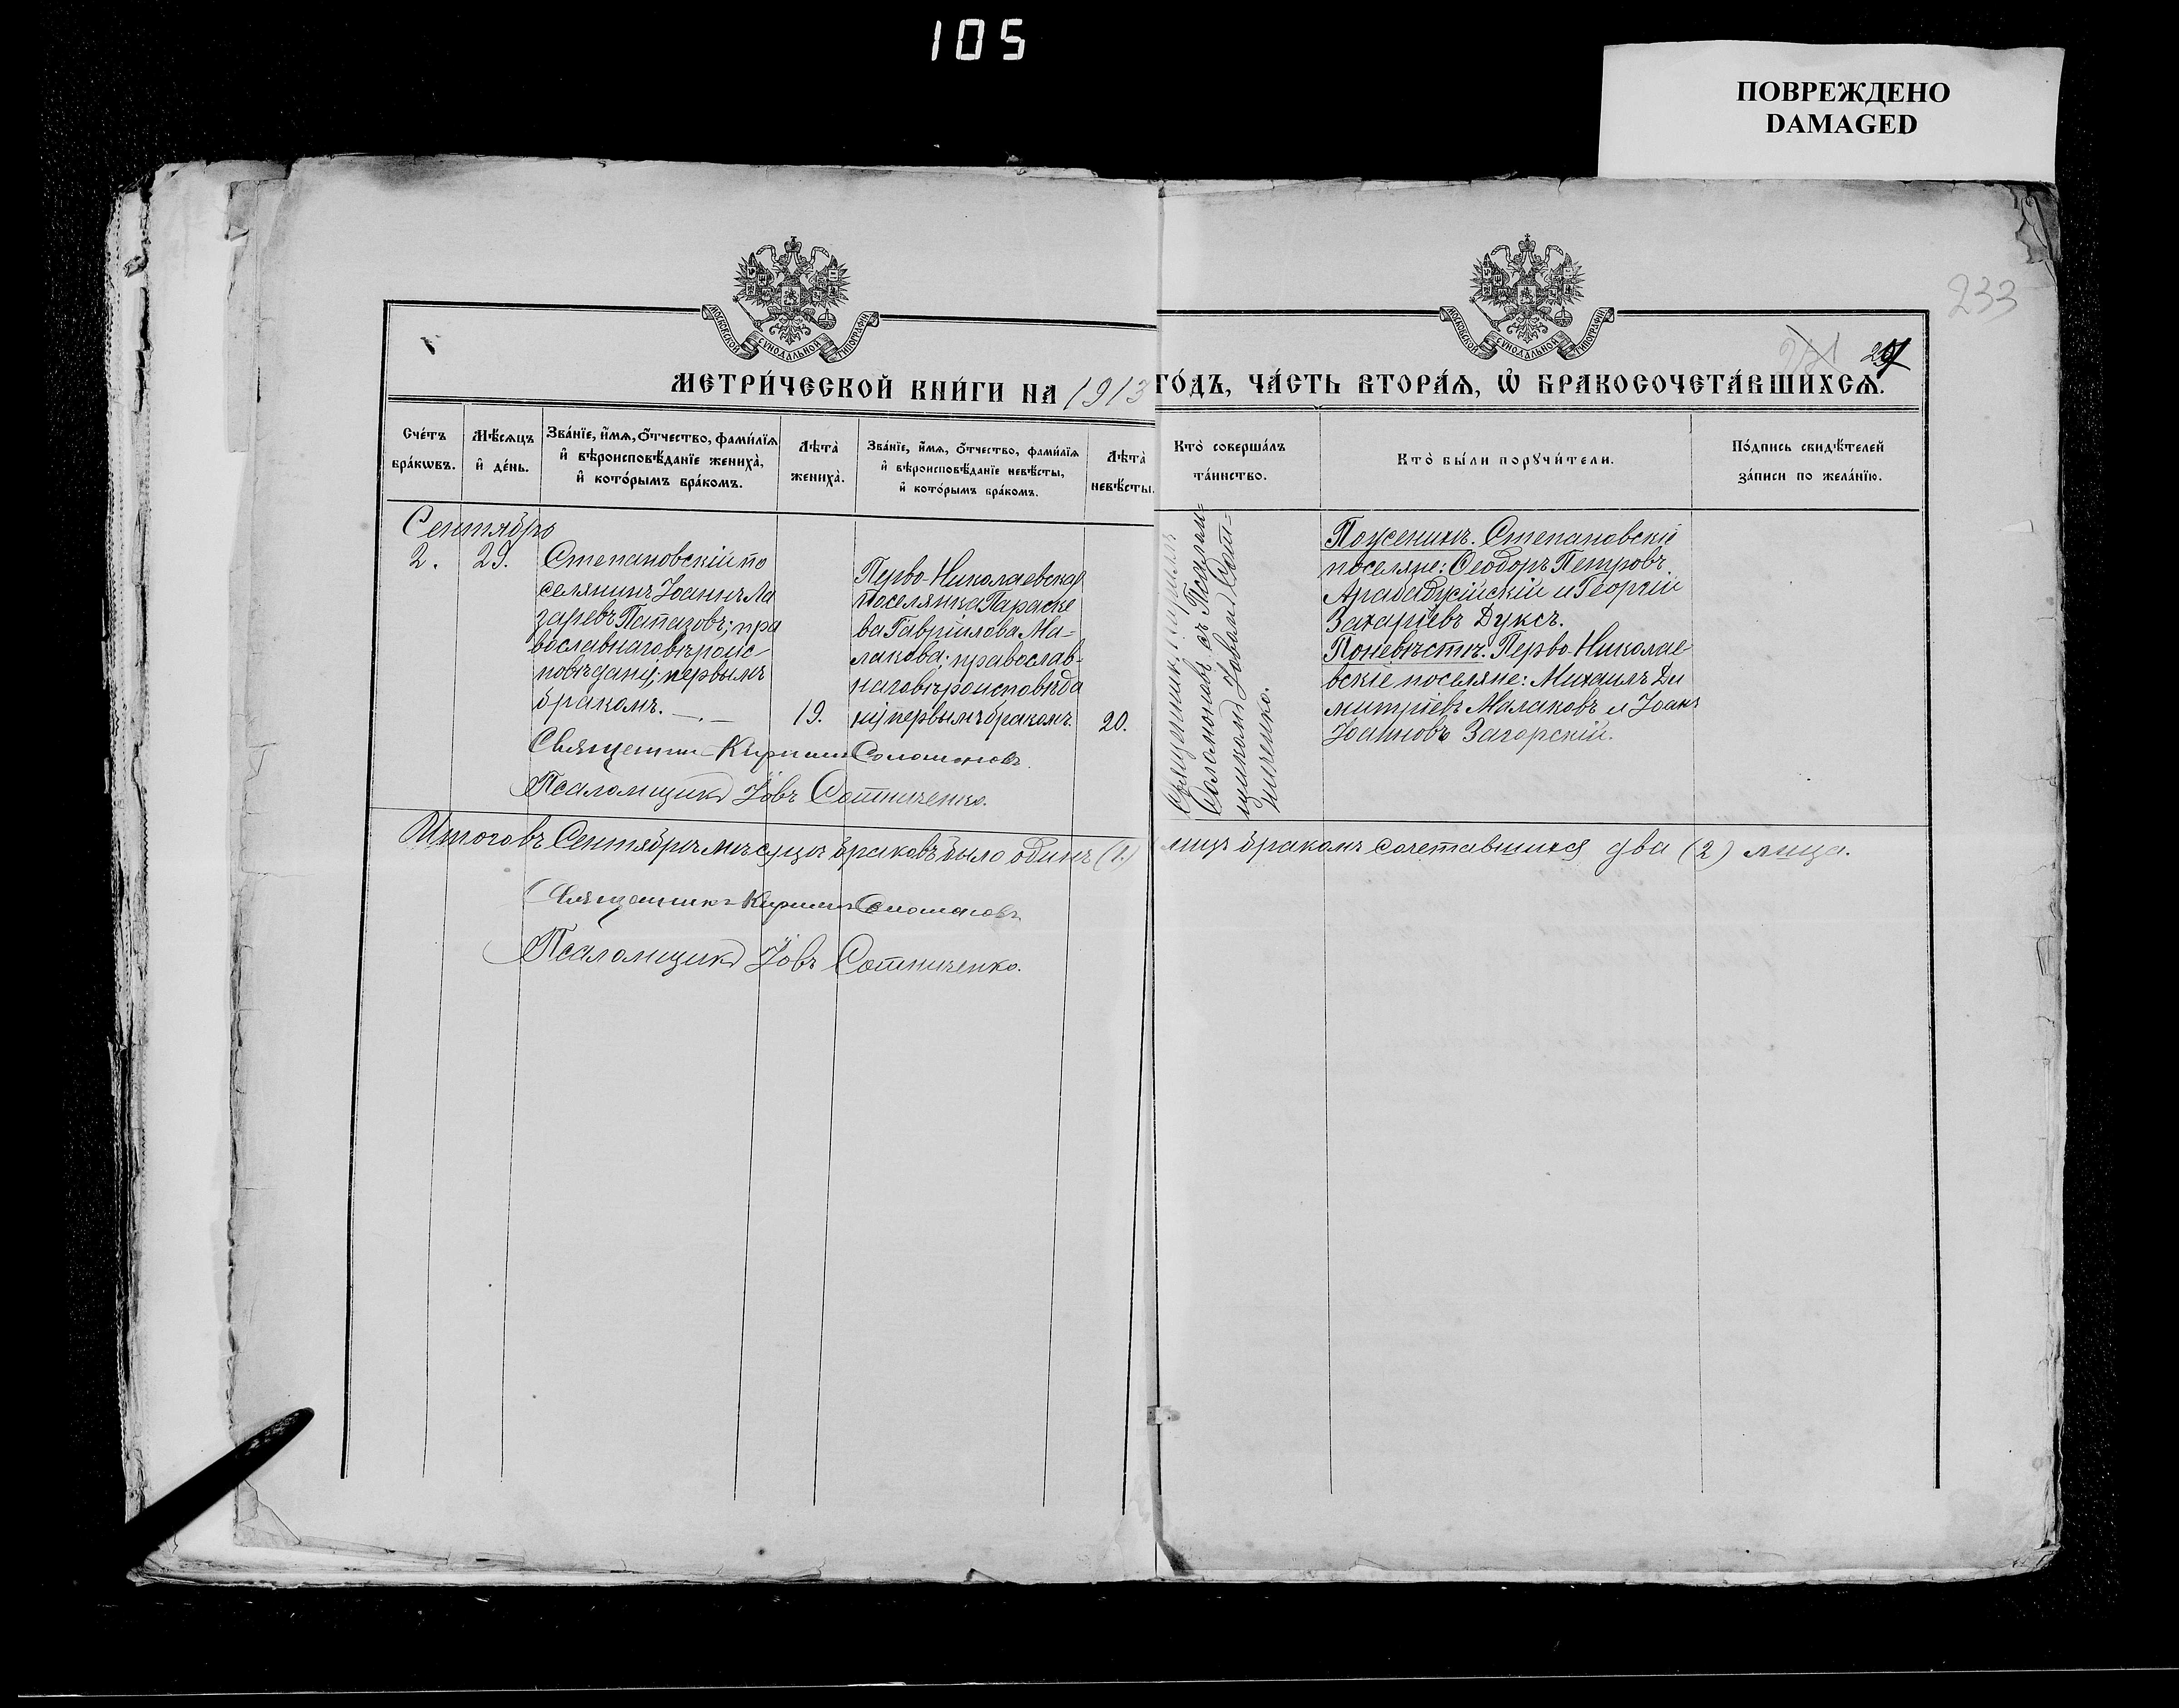 105
ПОВРЕЖДЕНО
DAMAGED
233
МОСКОВСКОЙ СУНОДАЛЬНОЙ ТИПОГРАФІИ
МОСКОВСКОЙ СУНОДАЛЬНОЙ ТИПОГРАФІИ
МЕТРИ́ЧЕСКОЙ КНИ́ГИ НА 1913 ГО́ДЪ, ЧА́СТЬ ВТОРА́Ѧ, Ѡ҆ БРАКОСОЧЕТА́ВШИХСѦ.
Сче́тъ
бра́кѡвъ.
Мѣ́сѧцъ
и҆ де́нь.
Зва́нїе, и҆́мѧ, ѻ҆́тчество, фами́лїѧ
и҆ вѣроисповѣ́данїе жениха̀,
и҆ кото́рымъ бра́комъ.
Лѣта̀
жениха̀.
Зва́нїе, и҆́мѧ, ѻ҆́тчество, фами́лїѧ
и҆ вѣроисповѣ́данїе невѣ́сты,
и҆ кото́рымъ бра́комъ.
Лѣта̀
невѣ́сты.
Кто̀ соверша́лъ
та́инство.
Кто̀ бы́ли порꙋчи́тели.
По́дпись свидѣ́телей
за́писи по жела́нїю.
Сентябрь
2. 29.
Степановскій по
селянинъ Іоаннъ Ла
заревъ Папазовъ; пра
вославнаго вѣроис-
повѣданія; первымъ
бракомъ.
19.
Перво-Николаевская
поселянка Параске
ва Гавріилова Ма-
лакова; православ-
наго вѣроисповѣда
нія первымъ бракомъ.
20.
Священникъ Кириллъ
Соломоновъ съ Псалом-
щикомъ Іовомъ Сот-
ниченко.
По женихѣ. Степановскіе
поселяне: Ѳеодоръ Петровъ
Арабаджійскій и Георгій
Захаріевъ Дуксъ.
По невѣстѣ. Перво-Николае
вскіе поселяне: Михаилъ Ди
митріевъ Малаковъ и Іоаннъ
Іоанновъ Загорскій.
Священникъ Кириллъ Соломоновъ.
Псаломщикъ Іовъ Сотниченко.
Итого въ Сентябрѣ мѣсяцѣ браковъ было одинъ (1.) лицъ бракомъ сочетавшихся два (2) лица.
Священникъ Кириллъ Соломоновъ
Псаломщикъ Іовъ Сотниченко.